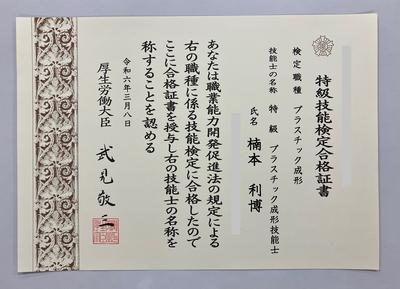 特級技能検定合格証書
検定職種 プラスチック成形
技能士の名称 特級 プラスチック成形技能士
氏名 楠本 利博
あなたは職業能力開発促進法の規定による
右の職種に係る技能検定に合格したので
ここに合格証書を授与し右の技能士の名称を
称することを認める
令和六年三月八日
厚生労働大臣 武見敬三